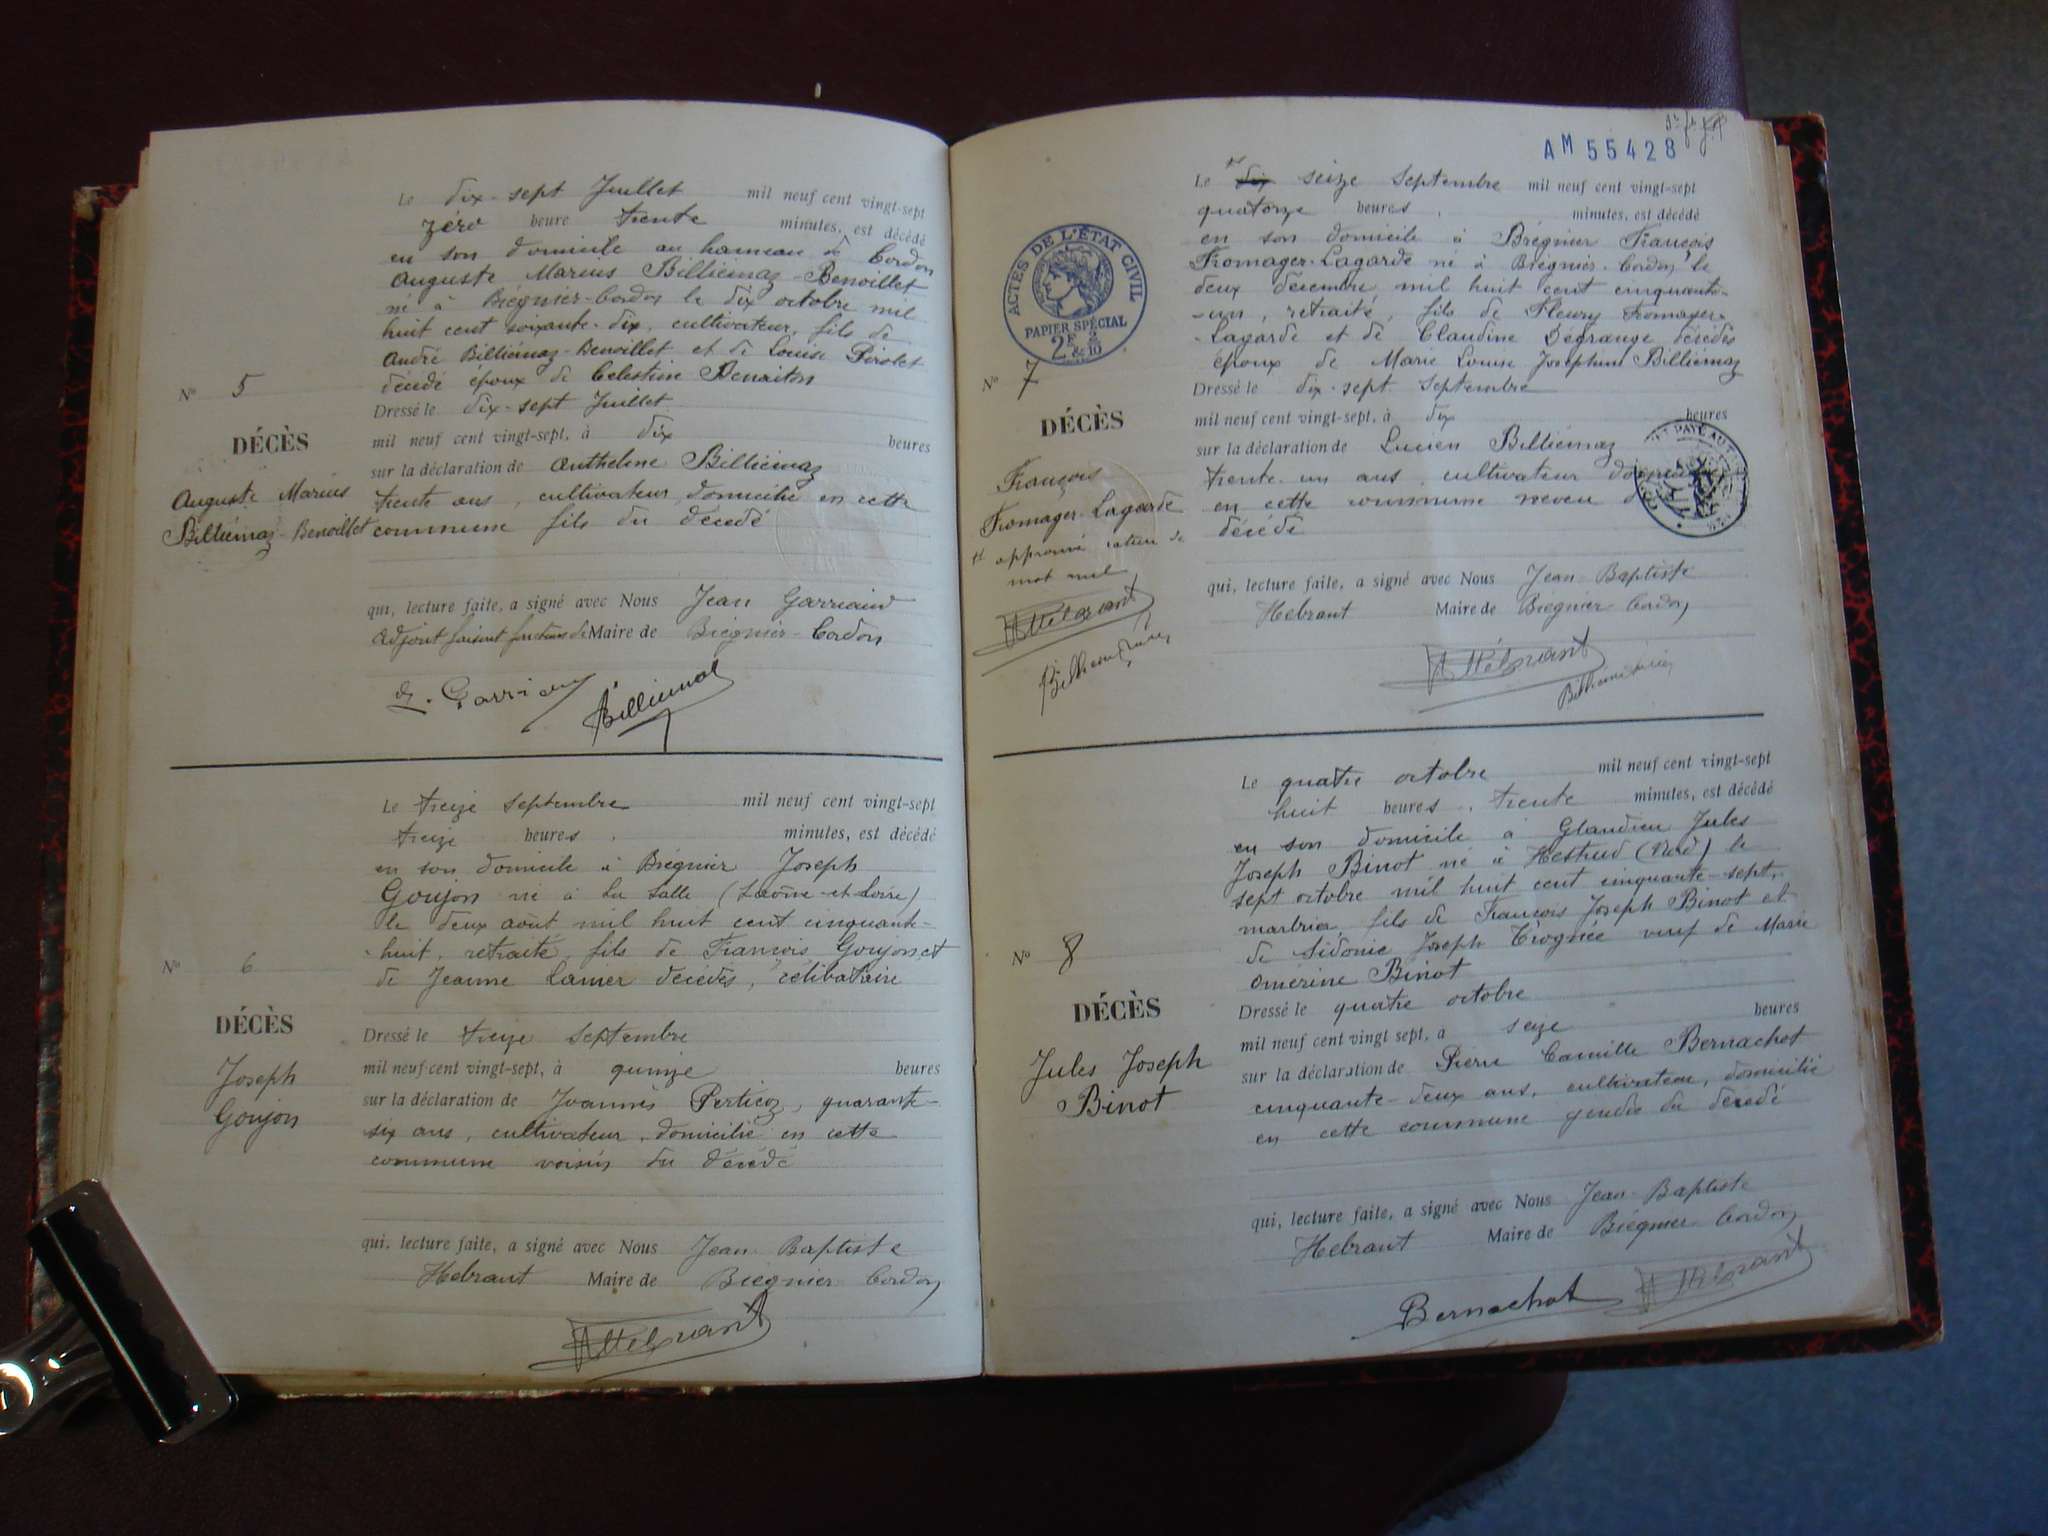 Le dix-sept Juillet mil neuf cent vingt-sept
zéro heure trente minutes, est décédé
en son domicile au hameau de Cordon
Auguste Marius Billiémaz-Benoillet
né à Brégnier-Cordon le dix octobre mil
huit cent soixante-dix, cultivateur, fils de
André Billiémaz-Benoillet et de Louise Pirolet
décédé époux de Célestine
Dressé le dix-sept Juillet
mil neuf cent vingt-sept, à dix heures
sur la déclaration de Anthelme Billiémaz
trente ans, cultivateur, domicilié en cette
commune fils du décédé
qui, lecture faite, a signé avec Nous Jean Garriaud
Adjoint faisant fonctions de Maire de Brégnier-Cordon
Billiémaz
N° 5
DÉCÈS
Auguste Marius
Billiémaz-Benoillet
Le treize septembre mil neuf cent vingt-sept
treize heures, minutes, est décédé
en son domicile à Brégnier Joseph
Goujon né à La Salle (Saône-et-Loire)
le deux août mil huit cent cinquante-
-huit, retraité, fils de François Goujon et
de Jeanne Lamer décédés, célibataire
Dressé le treize Septembre
mil neuf cent vingt-sept, à quinze heures
sur la déclaration de Joannès Perticoz, quarante-
six ans, cultivateur, domicilié en cette
commune voisin du décédé
qui, lecture faite, a signé avec Nous Jean Baptiste
Hébrant Maire de Brégnier Cordon
Hébrant
N° 6
DÉCÈS
Joseph
Goujon
AM 55428
Le dix seize Septembre mil neuf cent vingt-sept
quatorze heures, minutes, est décédé
en son domicile à Brégnier François
Fromager-Lagarde né à Brégnier-Cordon le
deux décembre mil huit cent cinquante-
-un, retraité, fils de Fleury Fromager-
-Lagarde et de Claudine Dégrange décédés
époux de Marie Louise Joséphine Billiémaz
Dressé le dix-sept Septembre
mil neuf cent vingt-sept, à dix heures
sur la déclaration de Lucien Billiémaz
trente-un ans, cultivateur
en cette commune neveu
décédé
qui, lecture faite, a signé avec Nous Jean-Baptiste
Hébrant Maire de Brégnier-Cordon
Hébrant
ACTES DE L'ÉTAT CIVIL
PAPIER SPÉCIAL
2F & 2/10
N° 7
DÉCÈS
François
Fromager-Lagarde
approuvé rature de
mot nul
Hébrant
Le quatre octobre mil neuf cent vingt-sept
huit heures, trente minutes, est décédé
en son domicile à Glandieu Jules
Joseph Binot né à Hestrud (Nord) le
sept octobre mil huit cent cinquante-sept,
marbrier, fils de François Joseph Binot et
de Sidonie Joseph Trognée veuf de Marie
Omérine Binot
Dressé le quatre octobre
mil neuf cent vingt sept, à seize heures
sur la déclaration de Pierre Camille Bernachot
cinquante-deux ans, cultivateur, domicilié
en cette commune gendre du décédé
qui, lecture faite, a signé avec Nous Jean-Baptiste
Hébrant Maire de Brégnier-Cordon
Bernachot Hébrant
N° 8
DÉCÈS
Jules Joseph
Binot